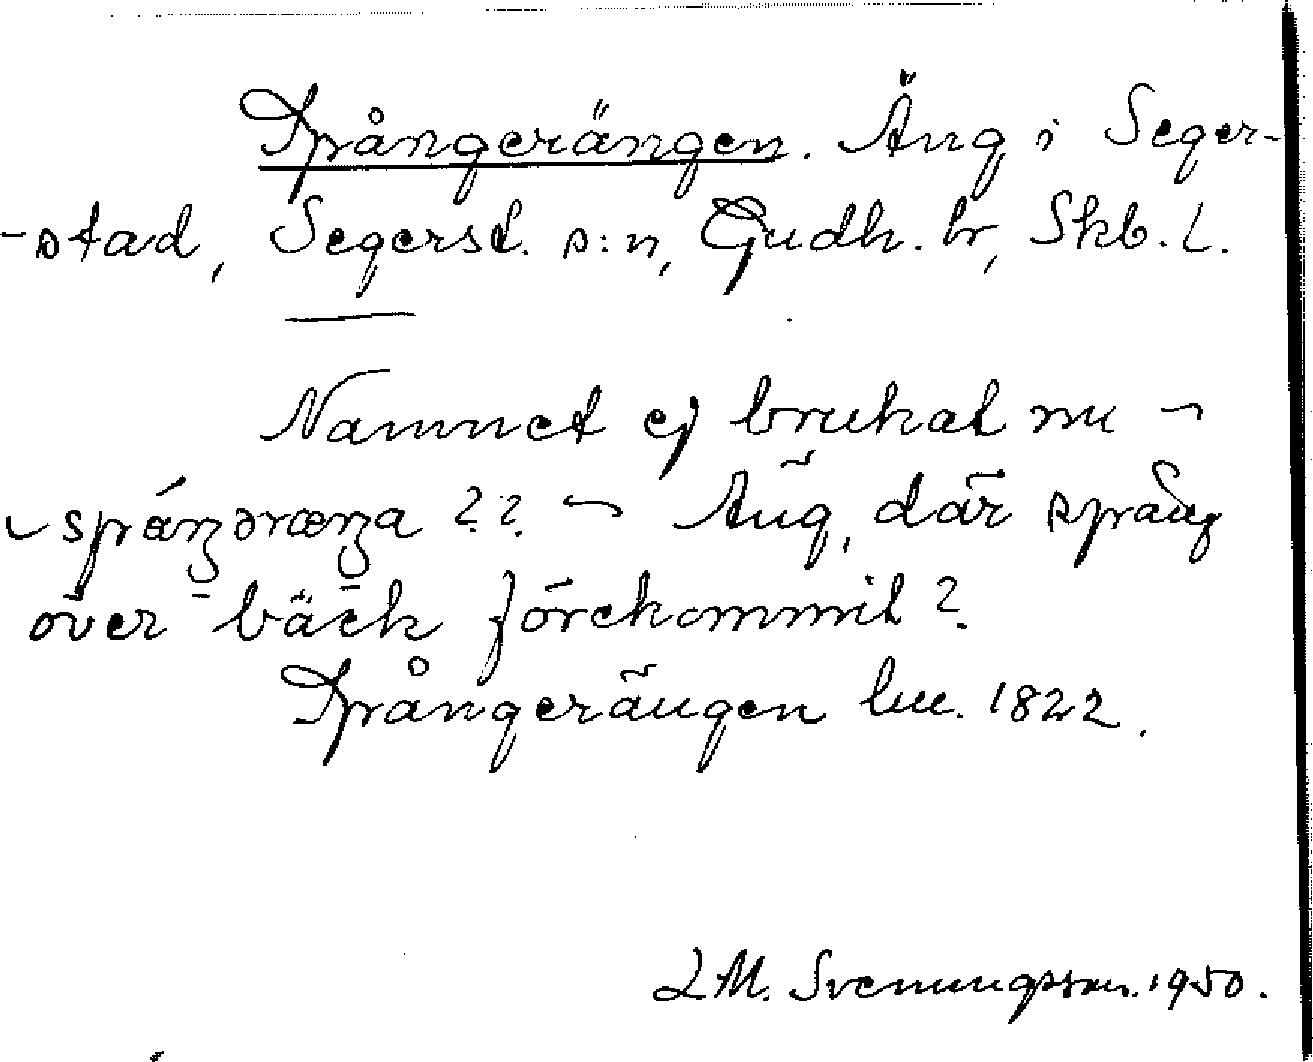 Spångerängen. Äng i Seger-
-stad, Segerst. s:n, Gudh. hr, Skb. L.
Namnet ej brukat nu –
över bäck förekommit?
Spångerängen lm. 1822.
L M. Svenungsson. 1950.